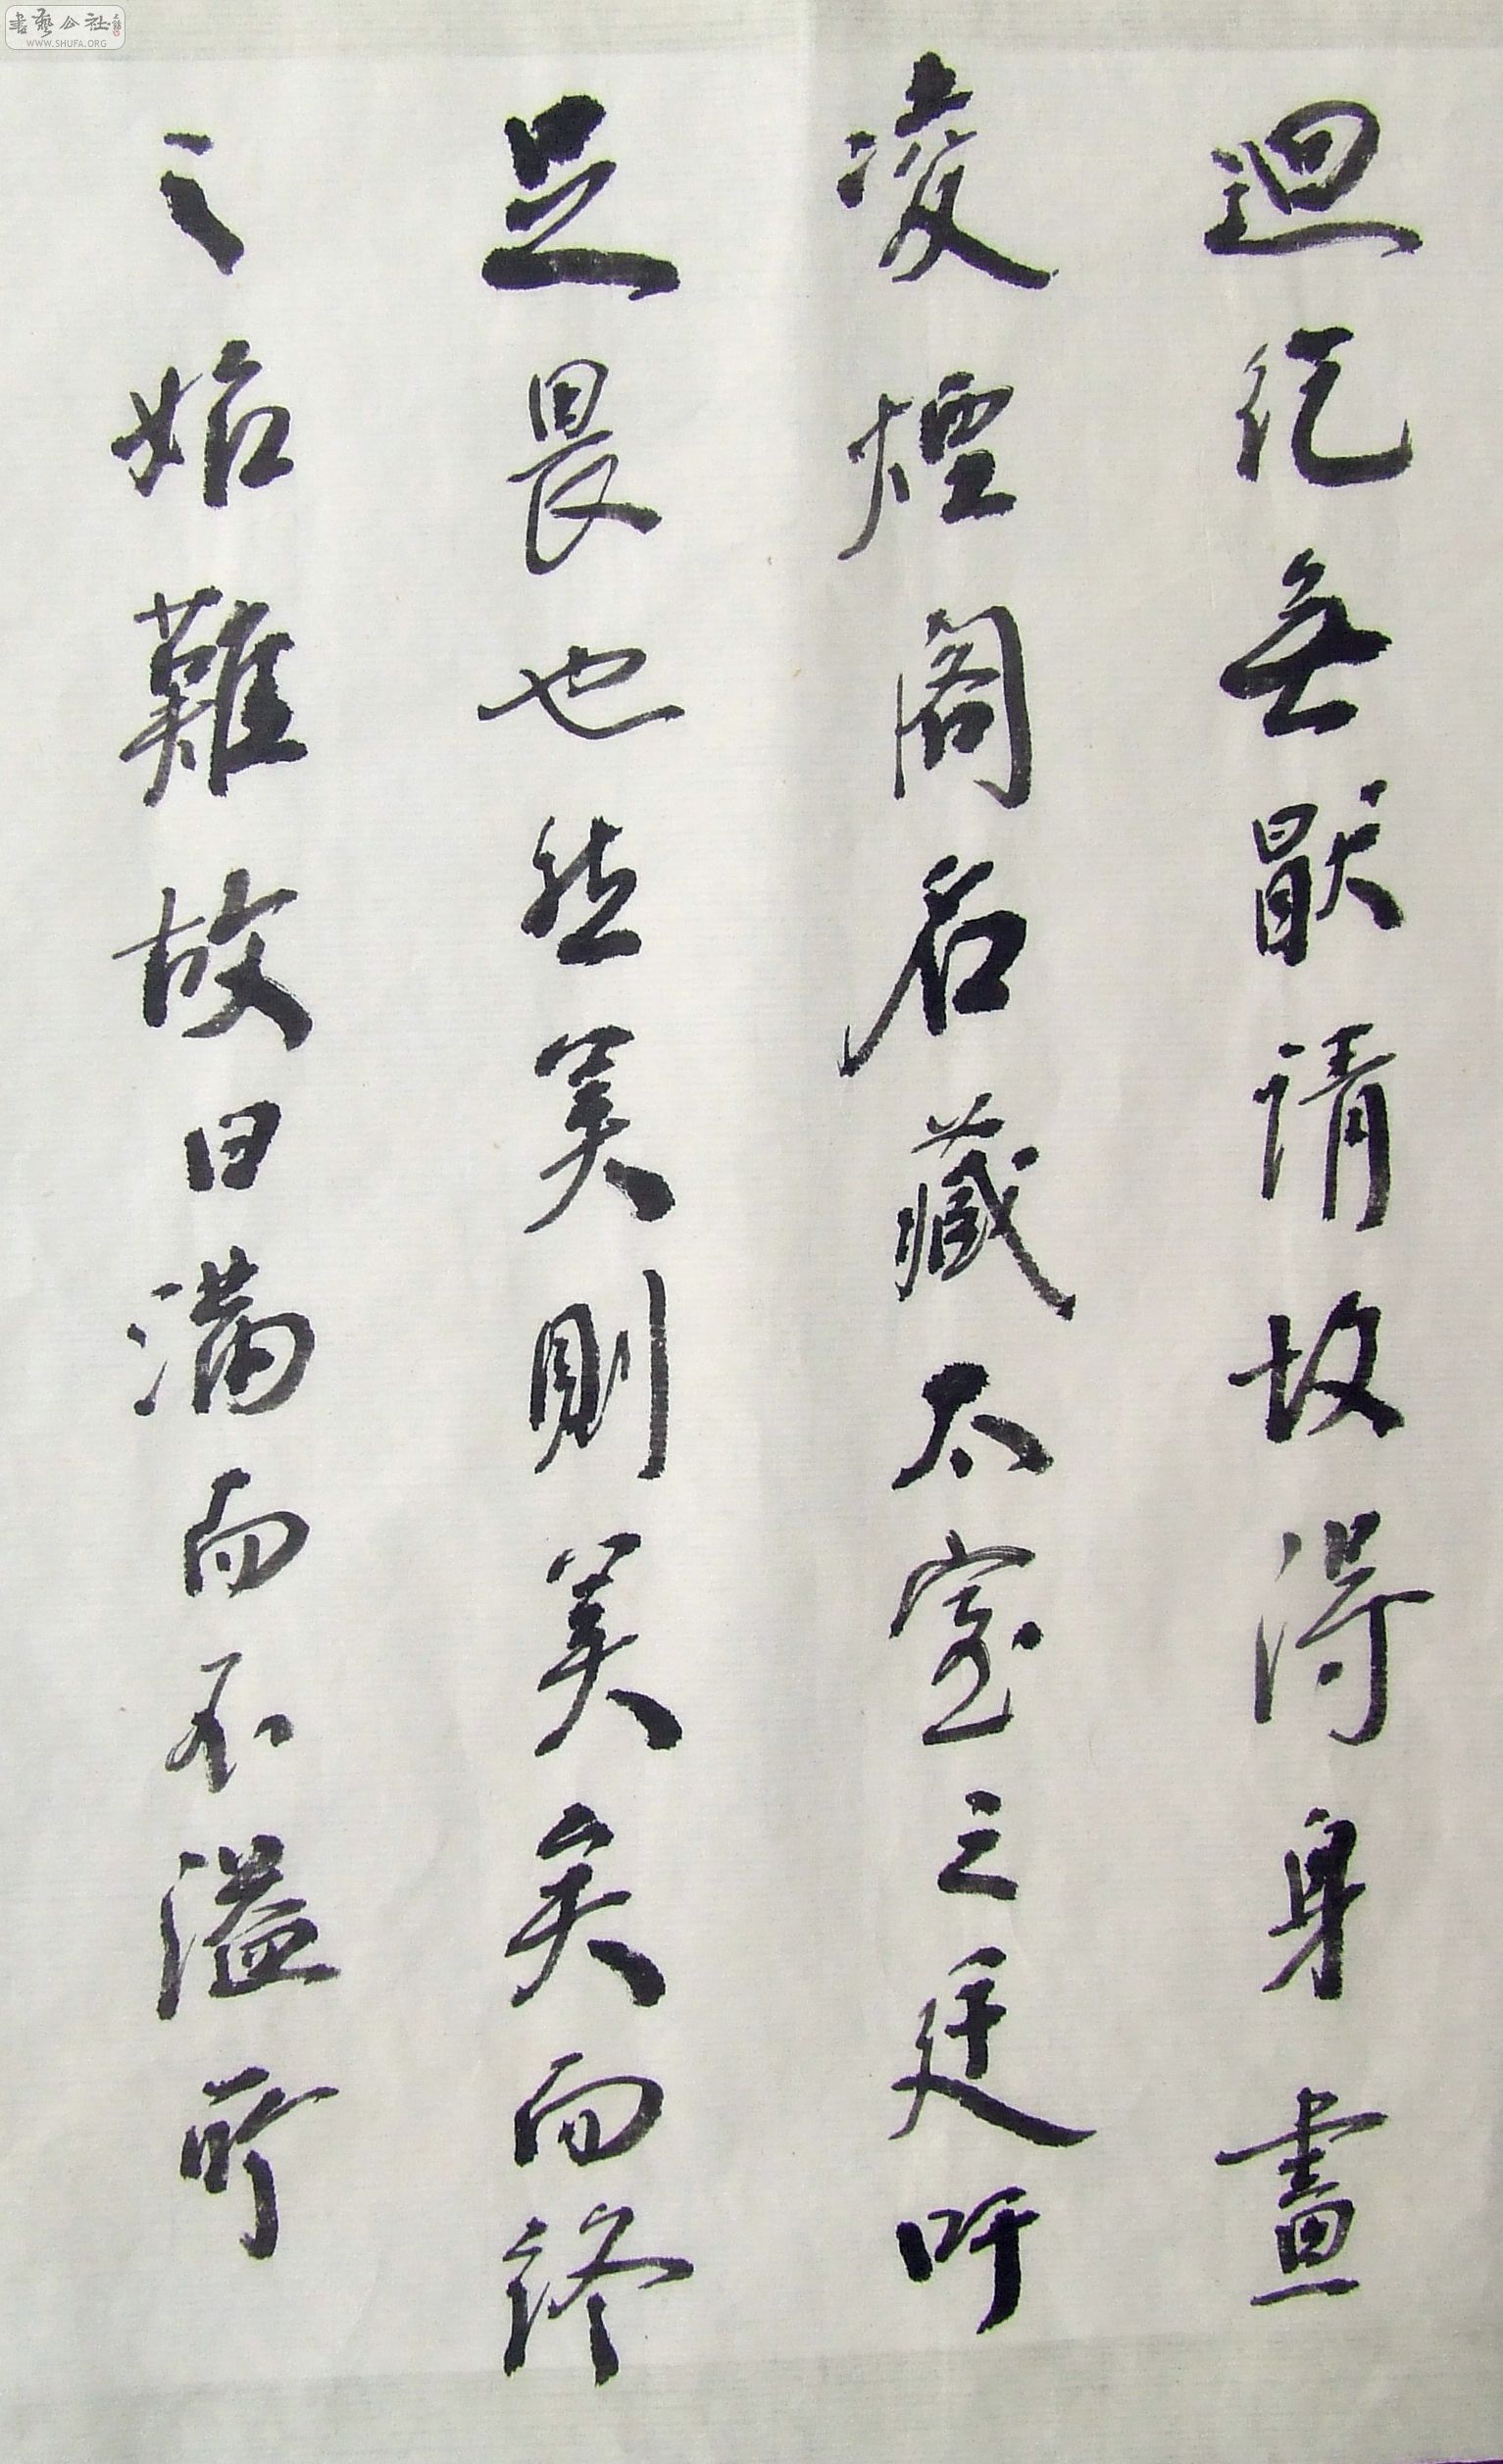 迴紇無厭請故得身畫
凌煙閣名藏太室之廷吁
足畏也然美則美矣而終
之始難故曰滿而不溢所
書藝公社
WWW.SHUFA.ORG